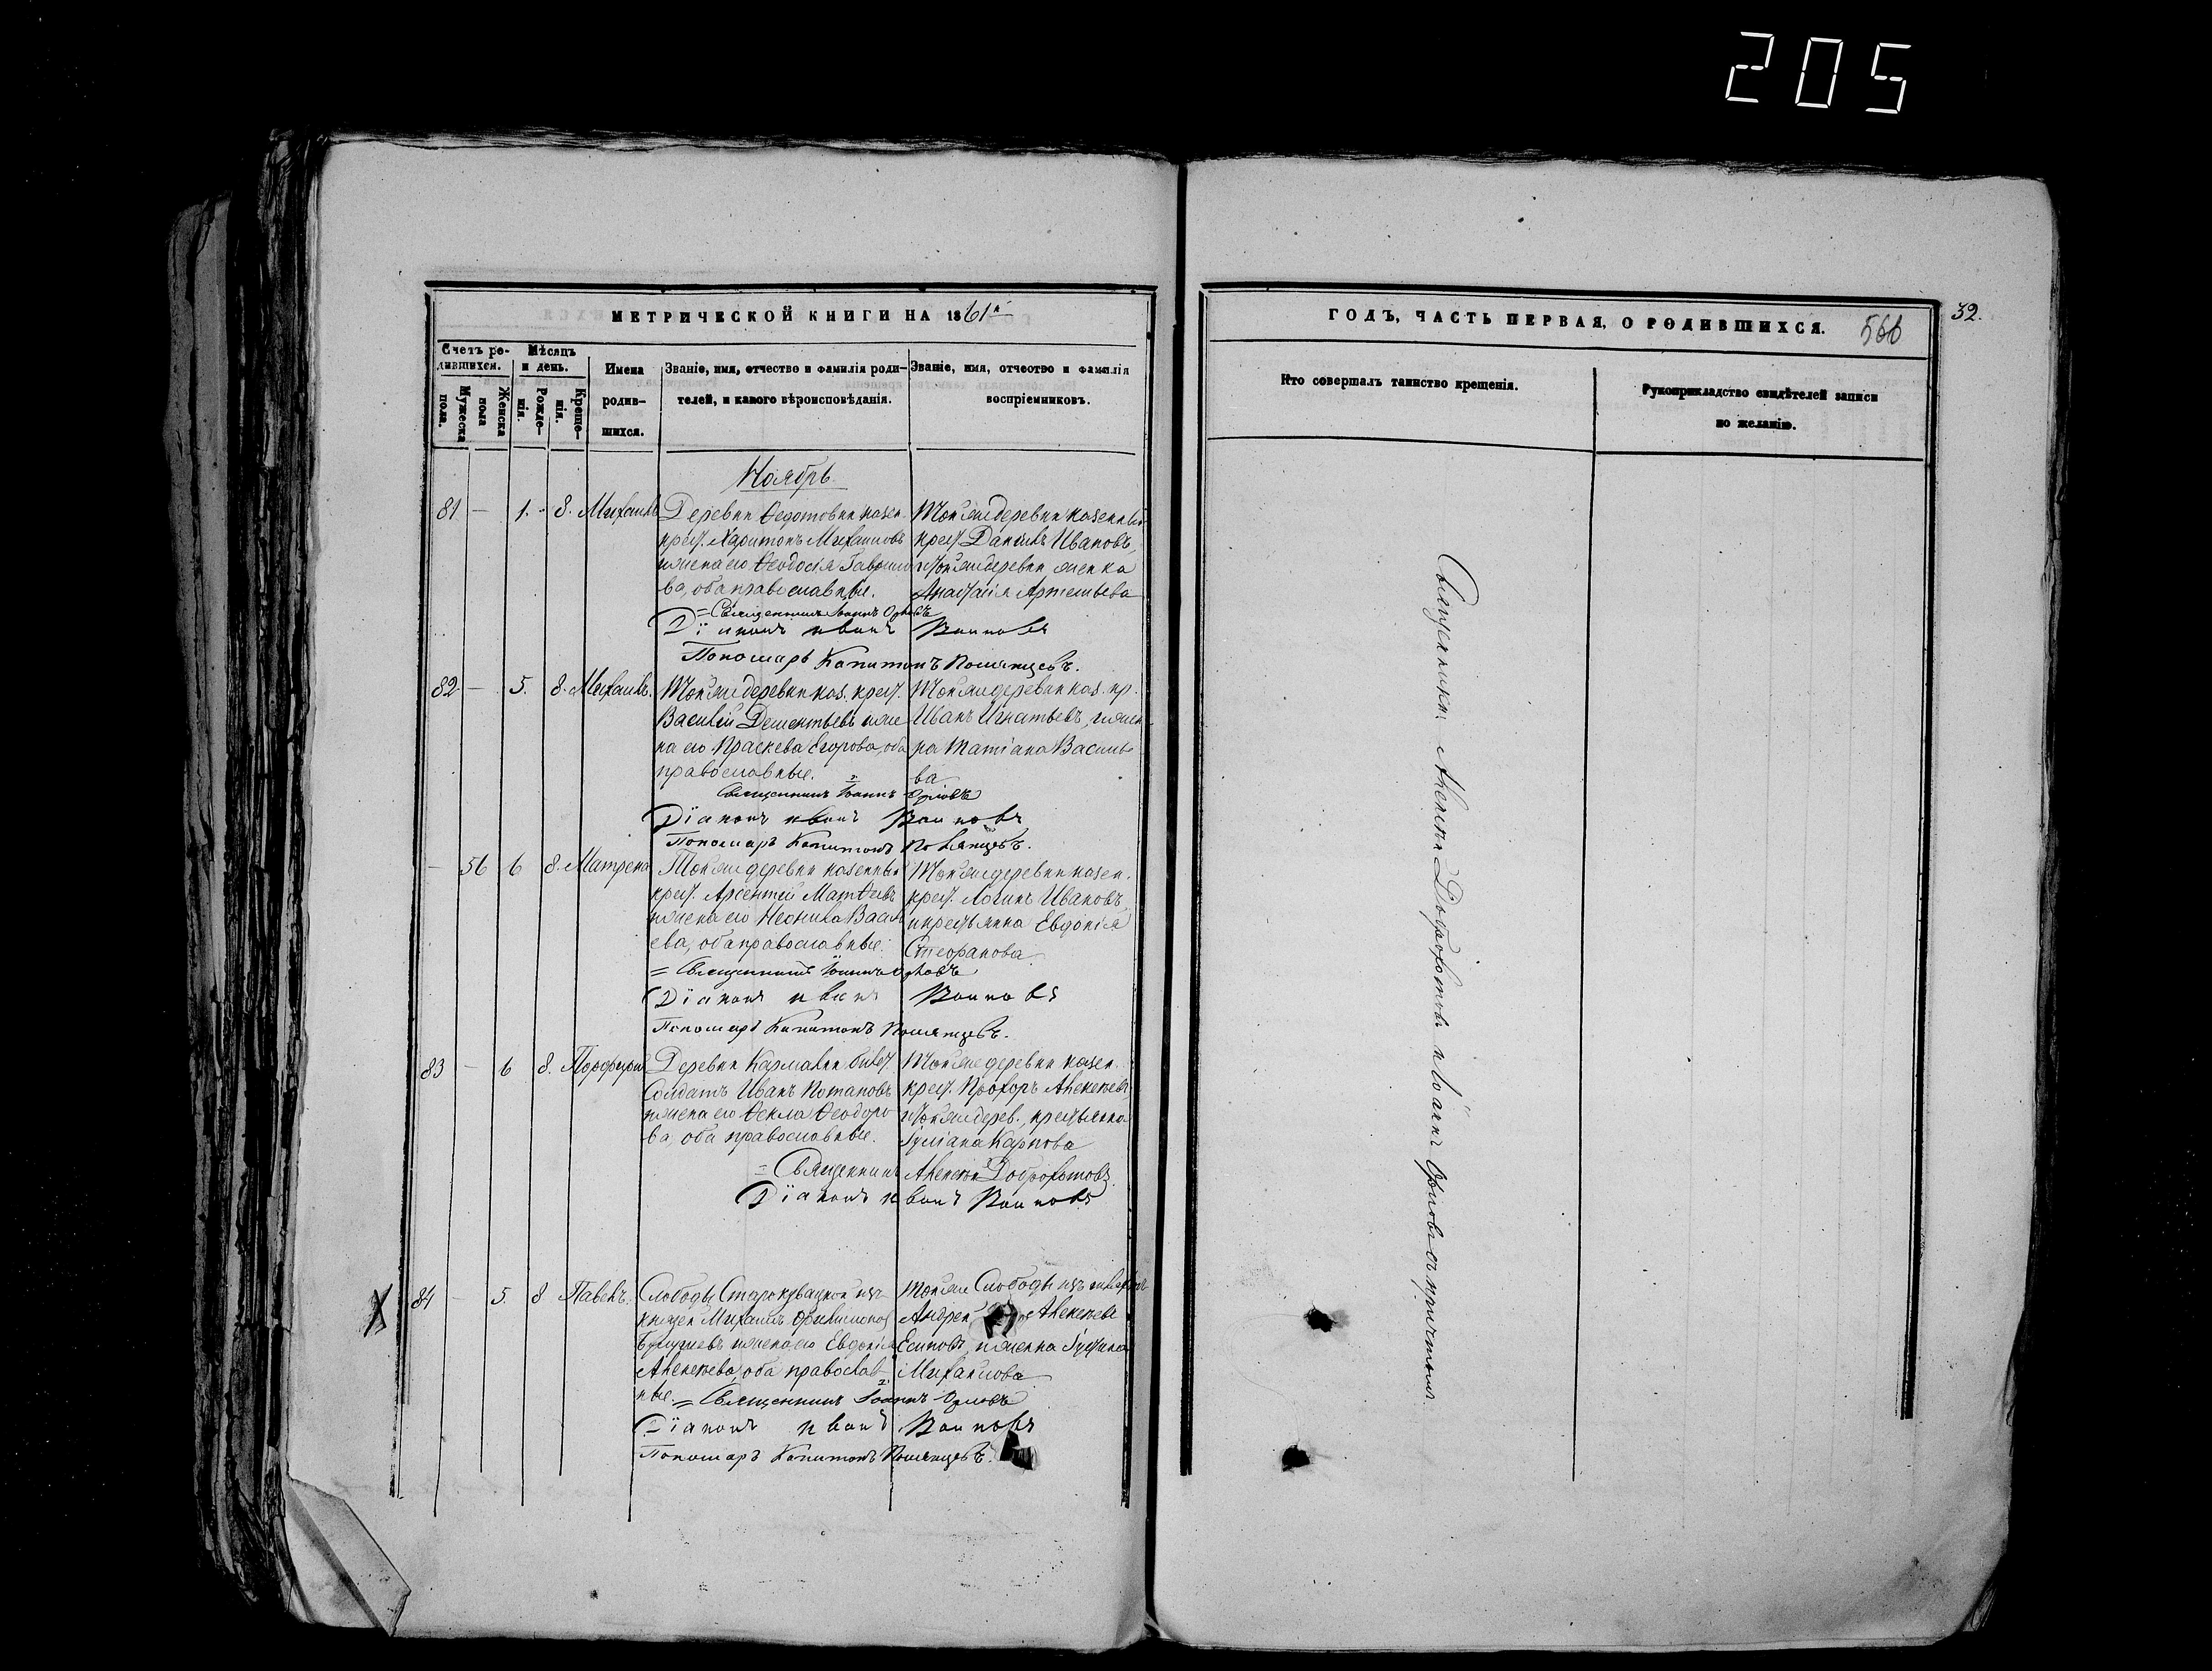 205
МЕТРИЧЕСКОЙ КНИГИ НА 1861й
Счетъ родившихся.
Мѣсяцъ и день.
Мужеска пола.
Женска пола
Рожденія.
Крещенія.
Имена родившихся.
Званіе, имя, отчество и фамилія родителей, и какого вѣроисповѣданія.
Званіе, имя, отчество и фамилія воспріемниковъ.
Ноябрь
81 — 1. 8. Михаилъ
Деревни Ѳедотовки казен.
крест. Харитонъ Михаиловъ
и жена его Ѳеодосія Гаврило
ва, оба православные.
Тойже деревни казенный
крест. Даніилъ Ивановъ,
и тойже деревни женка
Анастасія Артемьева
= Священникъ Іоаннъ Орловъ
Діаконъ Иванъ
Пономарь Капитонъ
82 — 5. 8. Михаилъ.
Тойже деревни каз. крест.
Василій Дементьевъ и же
на его Праскева Егорова, оба
православные.
Тойже деревни каз. кр.
Иванъ Игнатьевъ, и жен
ка Татіана Василье
ва
Священникъ Іоаннъ Орловъ
Діаконъ Иванъ
Пономарь Капитонъ
— 56 6 8. Матрена
Тойже деревни казенный
крест. Арсентій Матѳеевъ
и жена его Неонила Василь
ева, оба православные.
Тойже деревни казен.
крест. Логинъ Ивановъ,
и крестьянка Евдокія
Стефанова
= Священникъ Іоаннъ Орловъ
Діаконъ Иванъ
Пономарь Капитонъ
83 — 6 8. Порфирій
Деревни
Солдатъ Иванъ Потаповъ
и жена его Ѳекла Ѳеодоро
ва, оба православные.
Тойже деревни казен.
крест. Прохоръ Алексѣевъ
и тойже дерев. крестьянка
Іуліана Карпова
= Священникъ Алексѣй Доброхотовъ
Діаконъ Иванъ
84 — 5. 8 Павелъ.
Слободы
Михаилъ Филимонов
и жена его Евдокія
Алексѣева, оба православ-
ные.
Тойже Слободы
Андрей Алексѣевъ
Есиповъ, и женка
Михаилова
= Священникъ Іоаннъ Орловъ
Діаконъ Иванъ
Пономарь Капитонъ
ГОДЪ, ЧАСТЬ ПЕРВАЯ, О РОДИВШИХСЯ.
566
32.
Кто совершалъ таинство крещенія.
Рукоприкладство свидѣтелей записи по желанію.
Священники Алексѣй Доброхотовъ и Іоаннъ Орловъ съ причтомъ